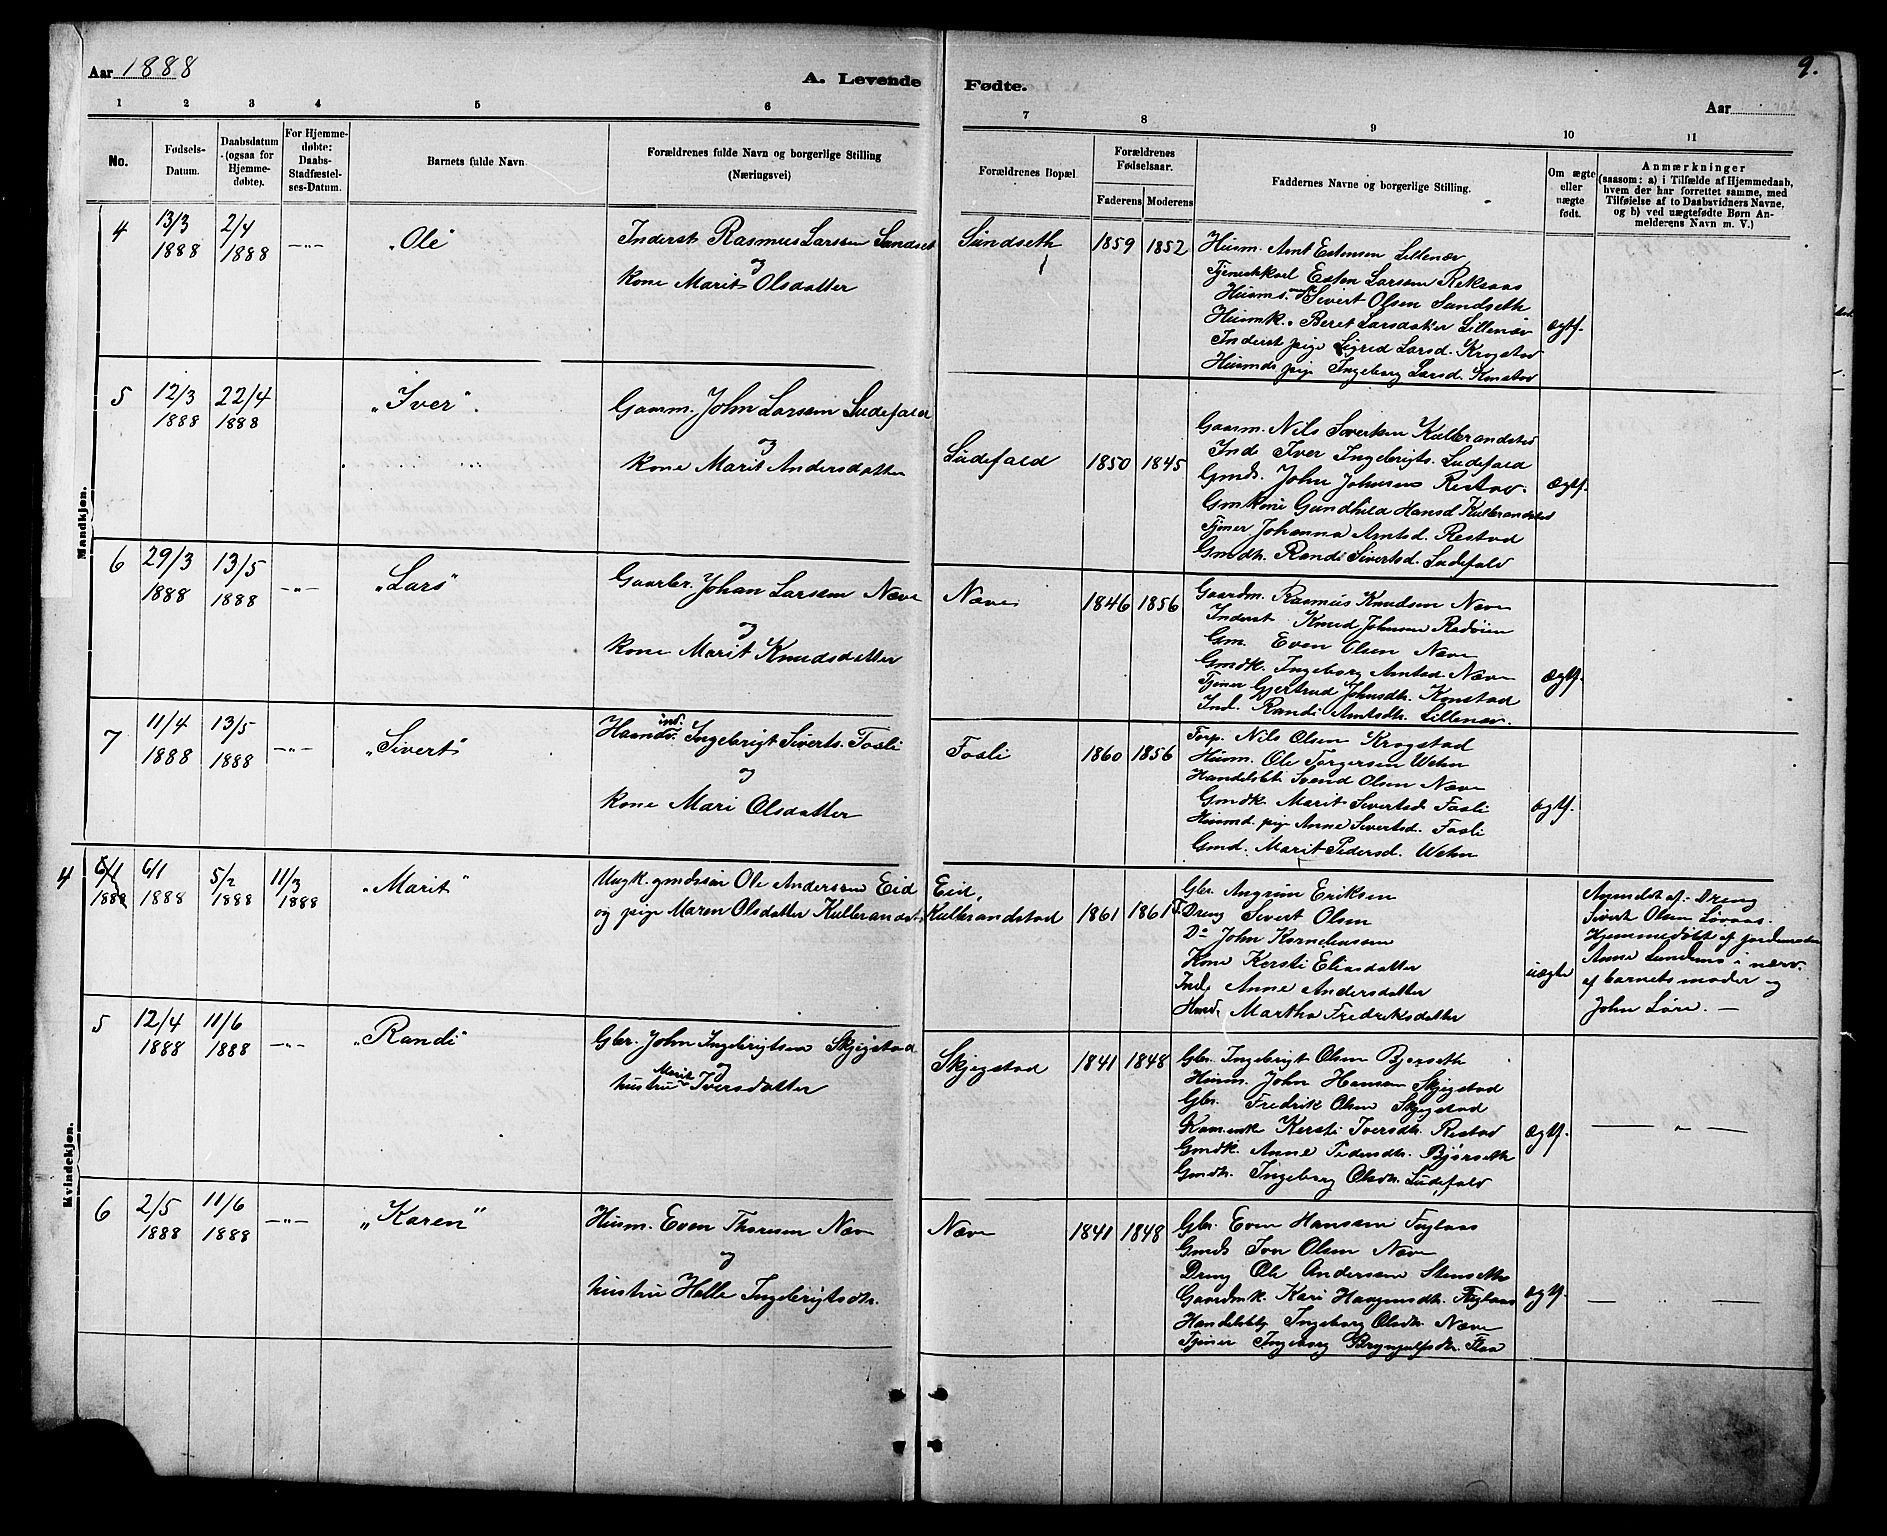 Aar 1888
A. Levende Fødte.
9.
Aar
1 2 3 4 5 6 7 8 9 10 11
No.
Fødsels-
Datum.
Daabsdatum
(ogsaa for
Hjemme-
døbte).
For Hjemme-
døbte:
Daabs-
Stadfæstel-
ses-Datum.
Barnets fulde Navn
Forældrenes fulde Navn og borgerlige Stilling
(Næringsvei)
Forældrenes Bopæl.
Forældrenes
Fødselsaar.
Faderens Moderens
Faddernes Navne og borgerlige Stilling.
Om ægte
eller
uægte
født.
Anmærkninger
(saasom: a) i Tilfælde af Hjemmedaab,
hvem der har forrettet samme, med
Tilføielse af to Daabsvidners Navne,
og b) ved uægtefødte Børn An-
melderens Navn m. V.)
Mandkjøn.
4 13/3 1888 2/4 1888 —"— "Ole"
Inderst Rasmus Larssen Sundset
og
kone Marit Olsdatter
Sundseth 1859 1852
Husm. Arnt Estensen Lillenæv
Tjenestkarl Esten Larssen Reksaas
Husms. Sivert Olsen Sundseth
Husmk. Beret Larsdatter Lillenæv
Inderst pige Sigrid Larsd. Krogstad
Husmds pige Ingeborg Larsd. Knstad
ægtf.
5 12/3 1888 22/4 1888 "Iver".
Gaarm. John Larsen Ludefald
og
kone Marit Andersdatter
Ludefald 1850 1845
Gaarm. Nils Sivertsen Kulbrandstad
Ind Iver Ingebrigts. Ludefald
Gmds. John Johnsen Restad.
Gmkone Gundhild Hansd Kulbrandstad
Tjener Johanna Arntsd. Restad
Gmdtr. Randi Sivertsd. Ludefald
ægtf.
6 29/3 1888 13/5 1888 —"— "Lars"
Gaarbr. Johan Larssen Næve
og
kone Marit Knudsdatter
Næve 1846 1856
Gaardm. Rasmus Knudsen Næve
Inderst Knud Johnsen Radøien
Gm. Even Olsen Næve
Gmdk. Ingeborg Arntsd. Næve
Tjener Gjertrud Johnsdtr. Konstad
Ind. Randi Arntsdtr. Lillenæv.
ægtf.
7 11/4 1888 13/5 1888 —"— "Sivert"
ind. Ingebrigt Siverts. Fosli
og
kone Mari Olsdatter
Fosli 1860 1856
Forp. Nils Olsen Krogstad
Husm. Ole Torgersen Wehn
Handelsbt. Svend Olsen Næve
Gmdk. Marit Sivertsd. Fosli
Husmd. pige Anne Sivertsd. Fosli
Gmd. Marit Pedersd. Wehn
ægtf.
Kvindekjøn.
4 6/1 1888 6/1 1888 5/2 1888 11/3 1888 "Marit"
Ungk. gmdssøn Ole Anderssen Eid
og pige Maren Olsdatter Kulbrandst.
Eid,
Kulbrandstad 1861 1861
Gbr. Angrim Eriksen
Dreng Sivert Olsen
Do John Korneliussen
Kone Kersti Eliasdatter
Ind. Anne Andersdatter
Hmd. Martha Fredriksdatter
uægte
Anmeldt af Dreng
Sivert Olsen Løvaas.
Hjemmedøbt af jordemoder
Anne Lundemo i nærv.
af barnets moder og
John Løre. —
5 12/4 1888 11/6 1888 —"— "Randi"
Gbr. John Ingebrigtsen Skjegstad
og
hustru Marit Iversdatter
Skjegstad 1841 1848
Gbr. Ingebrigt Olsen Bjørseth
Husm. John Hansen Skjegstad
Gbr. Fredrik Olsen Skjegstad
Kersti Iversdtr. Restad
Gmdk. Anne Pedersdtr. Bjørseth
Gmdtr. Ingeborg Olsdtr. Ludefald
ægtf. — " —
6 2/5 1888 11/6 1888 —"— "Karen"
Husm. Even Thoresen Næv
og
hustru Helle Ingebrigtsdtr.
Næve 1841 1848
Gbr. Even Hansen Fuglaas
Gmds Iver Olsen Næve
Dreng Ole Anderssen Stenseth
Gaardmk. Kari Haagensdtr. Fuglaas
Handelsbtj Ingeborg Olsdtr. Næve
Tjener Ingeborg Brynjulfsdtr. Flaa
ægtf. — " —